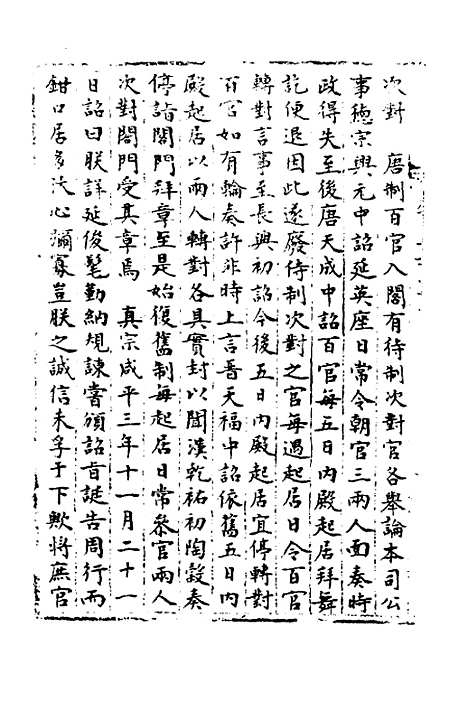 次對　唐制百官入閤有待制次對官各舉論本司公
事德宗興元中詔延英座日常令朝官三兩人面奏時
政得失至後唐天成中詔百官每五日內殿起居拜舞
訖便退因此遂廢待制次對之官每遇起居日令百官
轉對言事至長興初詔今後五日內殿起居宜停轉對
百官如有輪奏許非時上言晉天福中詔依舊五日內
殿起居以兩人轉對各具實封以聞漢乾祐初陶穀奏
停詣閤門拜章至是始復舊制每起居日常叅官兩人
次對閤門受其章焉　真宗咸平三年十一月二十一
日詔曰朕詳延俊髦勤納規諫嘗頒詔旨誕告周行而
鉗口居多沃心彌寡豈朕之誠信未孚于下歟將庶官